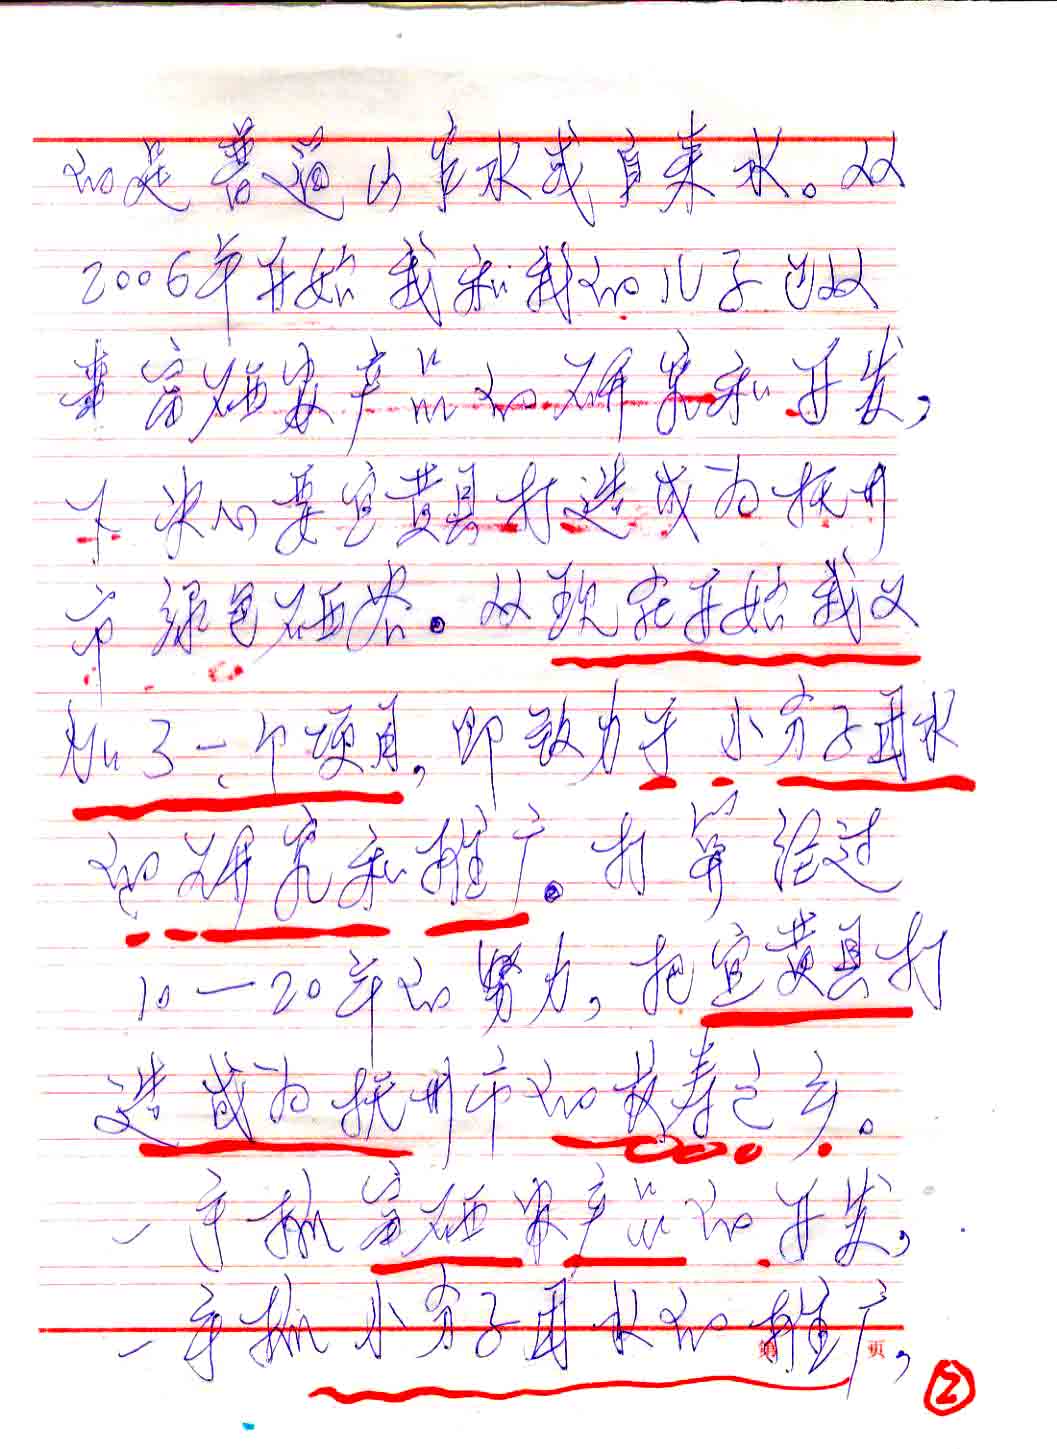 的是普通山泉水或自来水。从
2006年开始我和我的儿子已从
事富硒农产品的研究和开发,
下决心要宜黄县打造成为抚州
市绿色硒谷。从现在开始我又
加了一个项目,即致力于小分子团水
的研究和推广。打算经过
10一20年的努力,把宜黄县打
造成为抚州市的长寿之乡。
一手抓富硒农产品的开发,
一手抓小分子团水的推广,
第 页
②